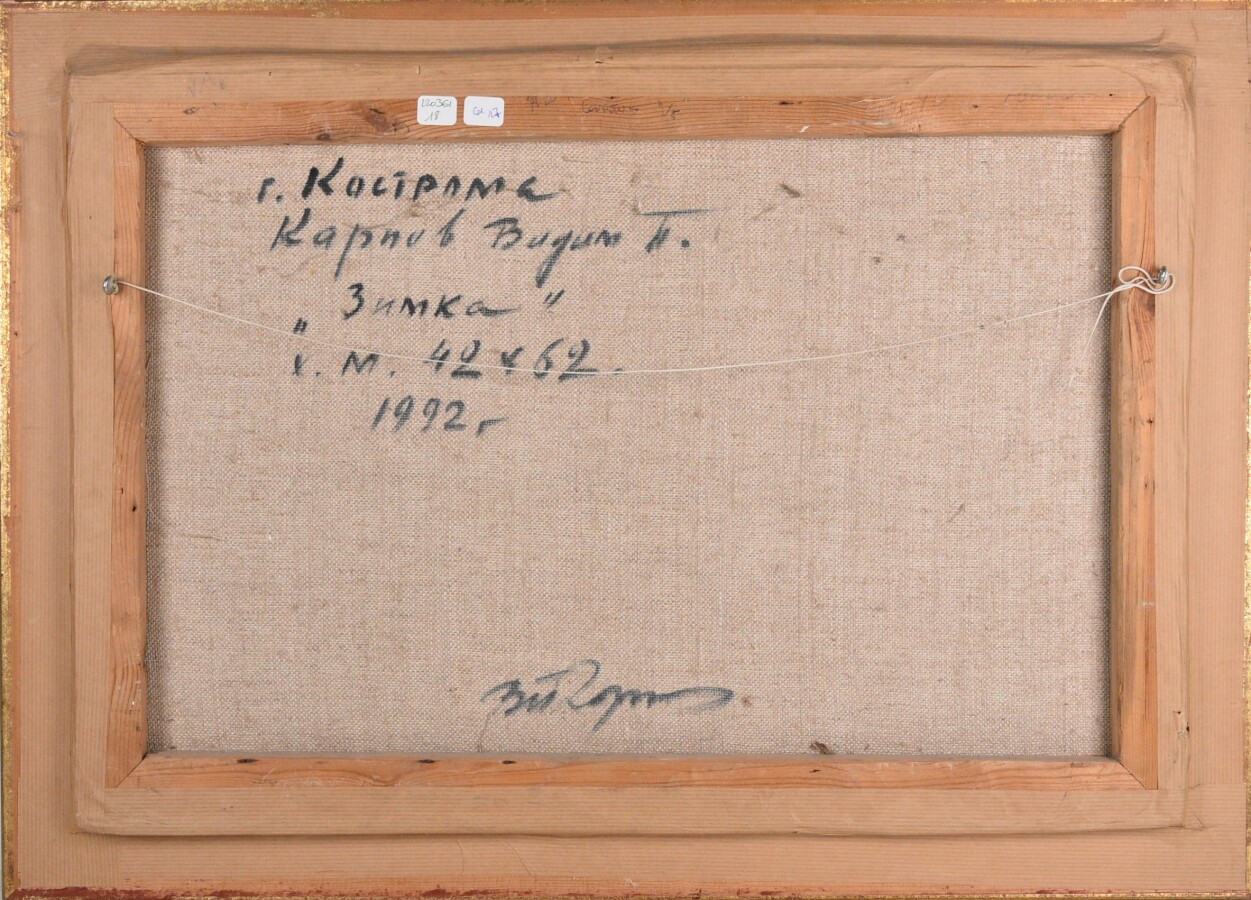 220361
18
г. Кострома
Карпов Вадим П.
„Зимка"
х. м. 42 х 62.
1992 г